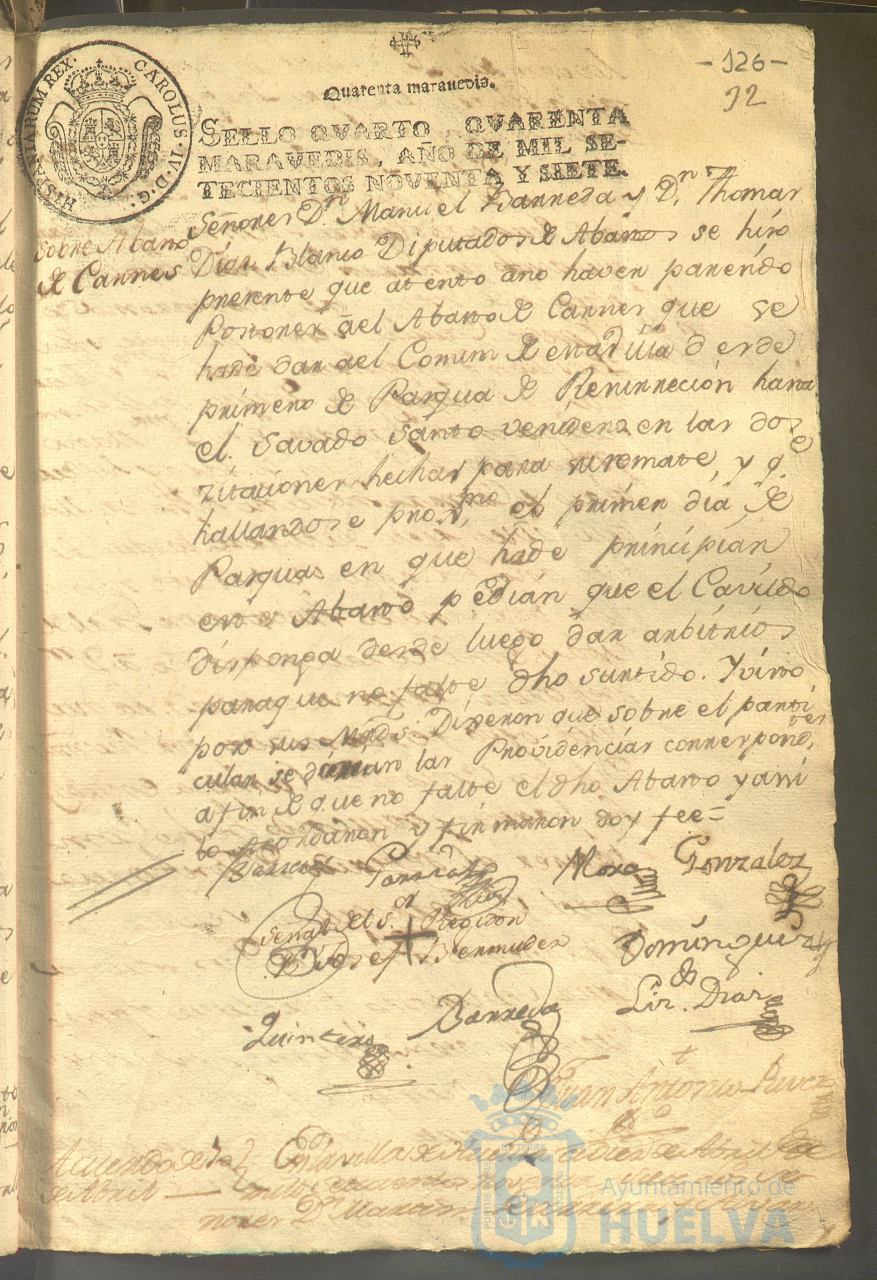 -126-
32
HISPANIARUM REX. CAROLUS IV. D. G.
Quarenta maravedis.
SELLO QVARTO, QVARENTA
MARAVEDIS, AÑO DE MIL SE-
TECIENTOS NOVENTA Y SIETE.
Sobre Abasto
de Carnes
Señores Dn. Manuel Barreda y Dn. Thomas
Días Blanco Diputados de Abastos se hizo
presente que atento ano haver parecido
Postores ael Abasto de Carnes que se
hade dar ael Comun de esta Villa desde
primero de Pasqua de Resurrección hasta
el Savado Santo venidero en las dos
zitaciones hechas para su remate, y qe
hallandose proxmo el primer dia de
Pasqua en que hade principiar
este Abasto pedian que el Cavildo
disponga desde luego dar arbitrios
paraque no falte dho surtido. Y visto
por sus Mrds. Dixeron que sobre el parti
cular se daran las Providencias correspondtes
afin de que no falte el dho Abasto y assi
lo Acordaron y firmaron doy fee=
Garrido
Mora
Gonzalez
Señal del Sor. Regidor
Dn. Josef + Bermudez
Dominguez
Quintero
Barreda
Liz. Diaz
Juan Antonio
Acuerdo de
de Abril
En la villa de Huelva de Abril de
mill setecientos noventa
nores Dn.
Ayuntamiento de
HUELVA